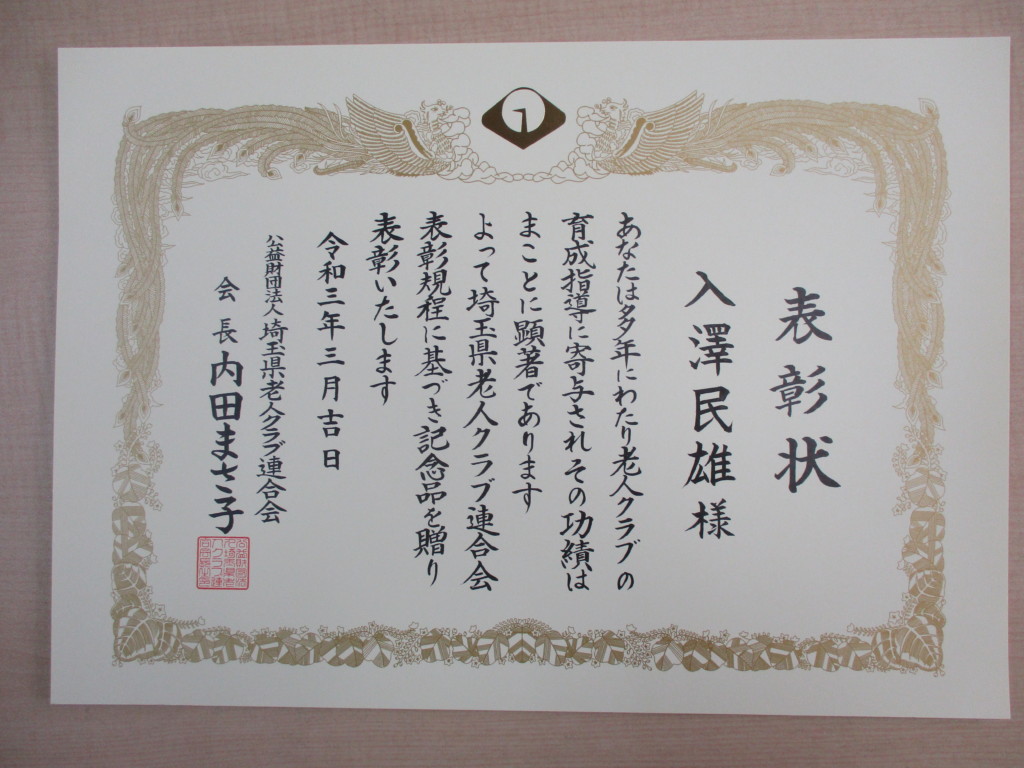 表彰状
入澤民雄様
あなたは多年にわたり老人クラブの
育成指導に寄与されその功績は
まことに顕著であります
よって埼玉県老人クラブ連合会
表彰規程に基づき記念品を贈り
表彰いたします
令和三年三月吉日
公益財団法人埼玉県老人クラブ連合会
会長内田まさ子